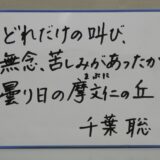 どれだけの叫び、
無念、苦しみがあったか
曇り日の摩文仁の丘
まぶに
千葉 聡